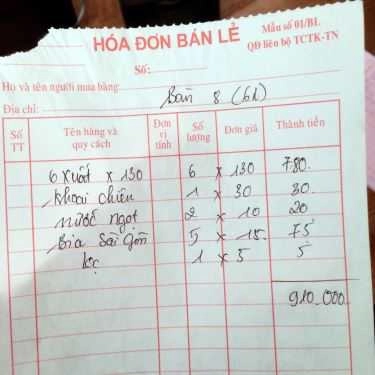 HÓA ĐƠN BÁN LẺ
Mẫu số 01/BL
QĐ liên bộ TCTK-TN
Số:
Họ và tên người mua hàng:
Bàn 8 (6k)
Địa chỉ:
Số TT Tên hàng và quy cách Đơn vị tính Số lượng Đơn giá Thành tiền
6 xuất x 130 6 x 130 780.
Khoai chiên 1 x 30 30.
nước ngọt 2 x 10 20
bia Sài Gòn 5 x 15. 75
lạc 1 x 5 5
910.000